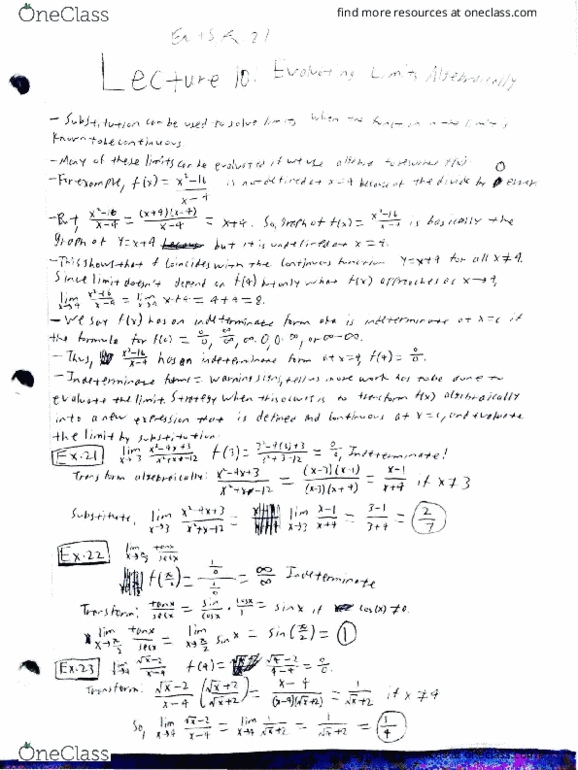 OneClass
find more resources at oneclass.com
Lecture 10: Evaluating Limits Algebraically
- Substitution can be used to solve limits when the function in the limit is
known to be continuous.
- Many of these limits can be evaluated if we use
- For example, f(x) = x²-16/x-4 is not defined at x=4 because of the divide by 0 error.
- But, x²-16/x-4 = (x+4)(x-4)/x-4 = x+4. So, graph of f(x) = x²-16/x-4 is basically the
graph of y=x+4 but it is undefined at x=4.
- This shows that f coincides with the continuous function y=x+4 for all x≠4.
Since limit doesn't depend on f(4) but only what f(x) approaches as x→4,
lim x→4 x²-16/x-4 = lim x→4 x+4 = 4+4 = 8.
- We say f(x) has an indeterminate form aka is indeterminate at x=c if
the formula for f(c) = 0/0, ∞/∞, ∞·0, 0·∞, or ∞-∞.
- Thus, x²-16/x-4 has an indeterminate form at x=4, f(4) = 0/0.
- Indeterminate forms = warning signs, tell us more work has to be done to
evaluate the limit. Strategy when this occurs is to transform f(x) algebraically
into a new expression that is defined and continuous at x=c, and evaluate
the limit by substitution.
Ex.21 lim x→3 x²-4x+3/x²+x-12 f(3) = 3²-4(3)+3/3²+3-12 = 0/0, Indeterminate!
Transform algebraically: x²-4x+3/x²+x-12 = (x-3)(x-1)/(x-3)(x+4) = x-1/x+4 if x≠3
Substitute, lim x→3 x²-4x+3/x²+x-12 = lim x→3 x-1/x+4 = 3-1/3+4 = 2/7
Ex.22 lim tanx/secx
f(π/2) = 1/0/1/0 = ∞/∞ Indeterminate
Transform: tanx/secx = sin/cosx · cosx/1 = sinx if cos(x)≠0.
lim x→π/2 tanx/secx = lim x→π/2 sin x = sin(π/2) = 1
Ex.23 lim x→4 √x-2/x-4 f(4) = √4-2/4-4 = 0/0.
Transform: √x-2/x-4 (√x+2/√x+2) = x-4/(x-4)(√x+2) = 1/√x+2 if x≠4
So, lim x→4 √x-2/x-4 = lim x→4 1/√x+2 = 1/√x+2 = 1/4
OneClass
find more resources at oneclass.com